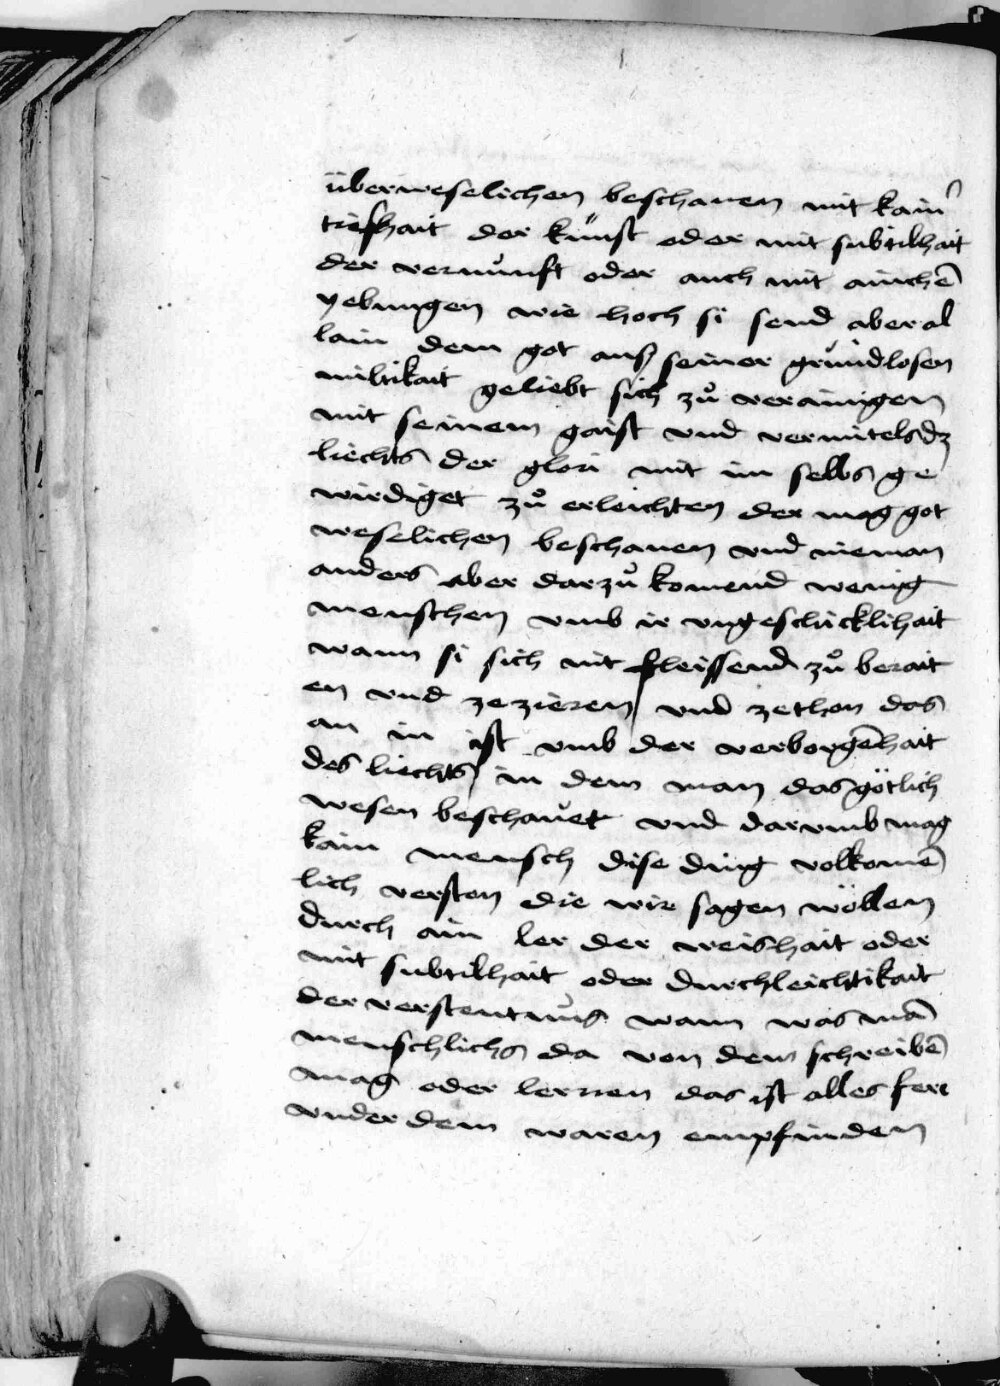 überweselichen beschauen mit kain̄
tiefhait der kůnst oder mit subtilhait
der vernůnft oder auch mit ainchē
yebungen wie hoch si send aber al
lain dem got auß seiner grůndlosen
miltikait geliebt sich zů verainigen
mit seinem gaist vnd vermitelst dz
liechts der glori mit im selbs ge
wirdiget zů erleichten der mag got
weselichen beschauen vnd nieman
anders aber darzů komend wenig
menschen vmb ir vngeschicklihait
wann si sich nit fleissend zů berait
en vnd ze zieren vnd ze thon das
an in ist vmb der verborgēhait
des liechts in dem man das götlich
wesen beschauet vnd darvmb mag
kain mensch dise ding volkomē
lich versten die wir sagen wöllen
durch ain ler der weishait oder
mit subtilhait oder durchleichtikait
der verstentnůs wann was mā
menschlichs da von dem schreibē
mag oder lernen das ist alles fere
vnder dem waren empfinden